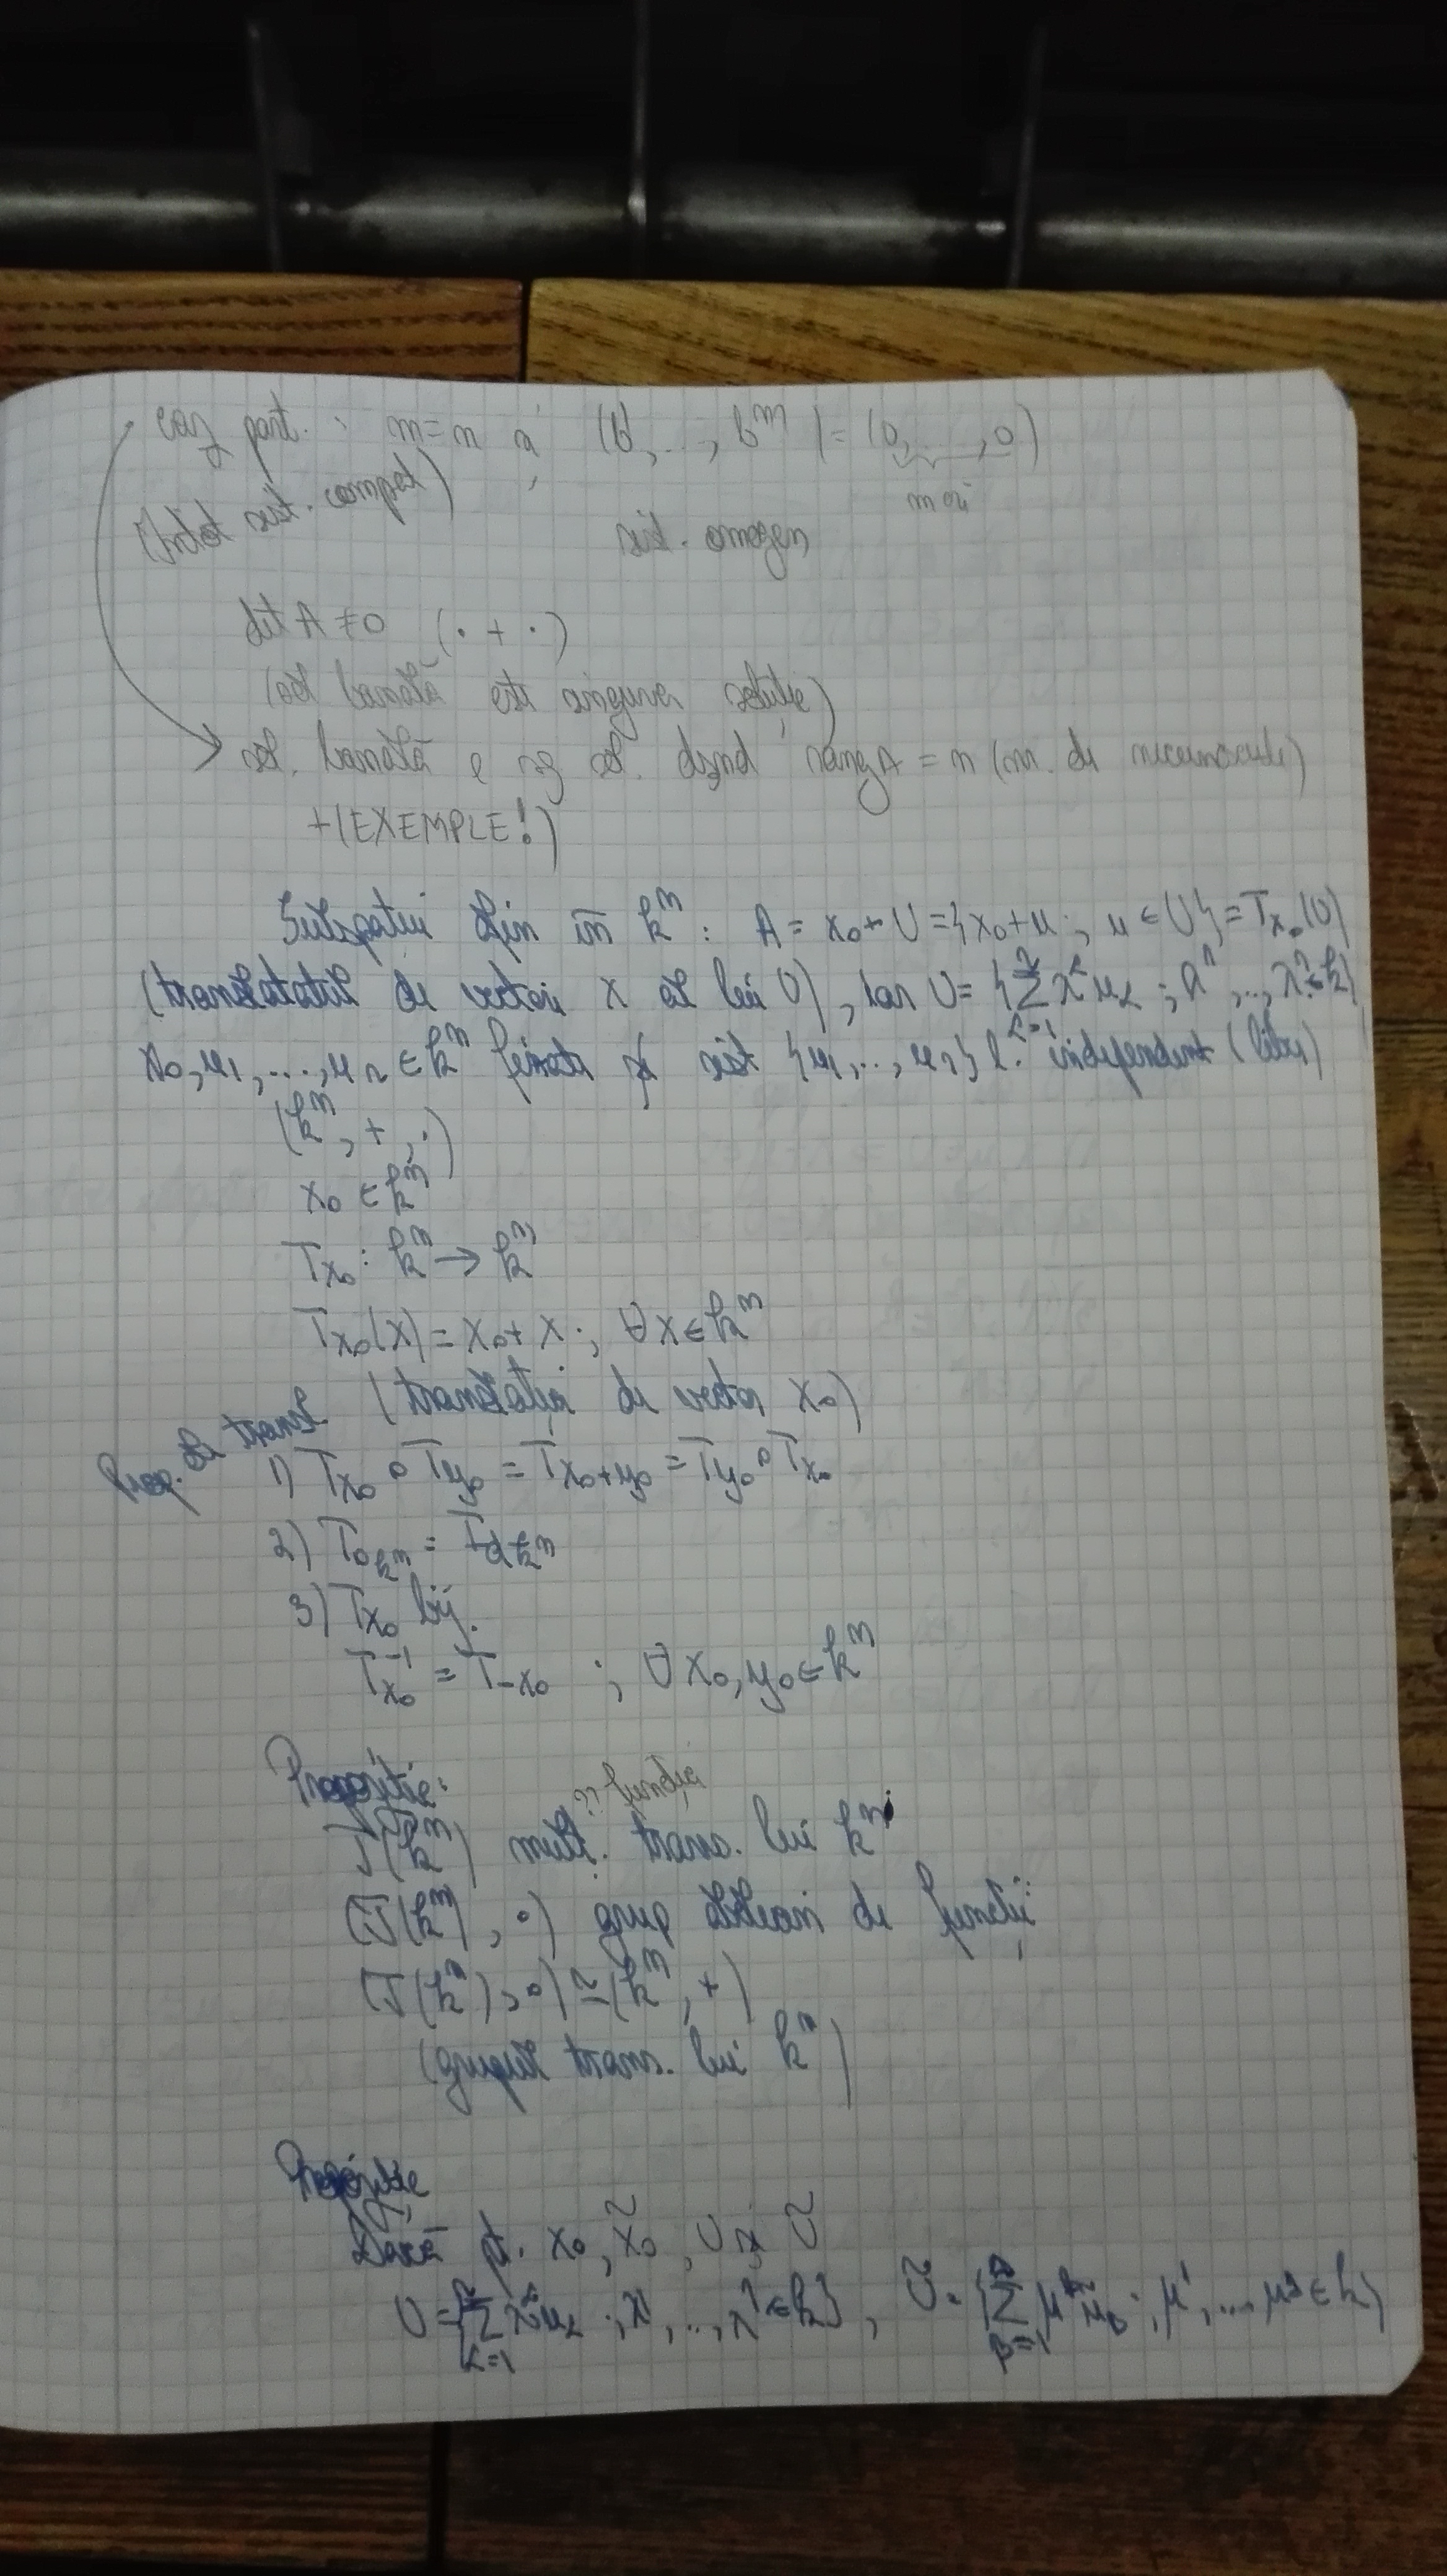 caz part. : m=n și (b¹,...,bᵐ)=(0,...,0)
m ori
(tot sist. compat)
sist. omogen
det A ≠ 0 (· + ·)
(sol banală este singura soluție)
sol. banală e sg sol. dznd rang A = n (nr. de necunoscute)
+(EXEMPLE!)
Subspațiu afin în kⁿ : A = x₀+U={x₀+u; u∈U}=Tx₀(U)
(translatatul de vector x al lui U), iar U={∑_{α=1}^{r} λ^α u_α ; λ¹,..,λʳ∈k}
x₀,u₁,...,u_r ∈kⁿ fixate și sist {u₁,..,u_r} l. independent (liber)
(kⁿ,+,·)
x₀ ∈ kⁿ
Tx₀ : kⁿ → kⁿ
Tx₀(x) = x₀+x ; ∀x∈kⁿ
(translația de vector x₀)
Prop. de transl
1) Tx₀ ∘ Ty₀ = Tx₀+y₀ = Ty₀ ∘ Tx₀
2) T0_kⁿ = Id_kⁿ
3) Tx₀ bij.
Tx₀⁻¹ = T₋x₀ ; ∀x₀,y₀∈kⁿ
Propoziție:
?? funcția
T(kⁿ) mult. trans. lui kⁿ
(T(kⁿ),∘) grup abelian de funcții
(T(kⁿ),∘)≃(kⁿ,+)
(grupul trans. lui kⁿ)
Propoziție
Dacă pt. x₀, x̃₀, U și Ũ
U={∑_{α=1}^{r} λ^α u_α ; λ¹,..,λʳ∈k}, Ũ={∑_{β=1}^{s} μ^β ũ_β ; μ¹,...,μˢ∈k}